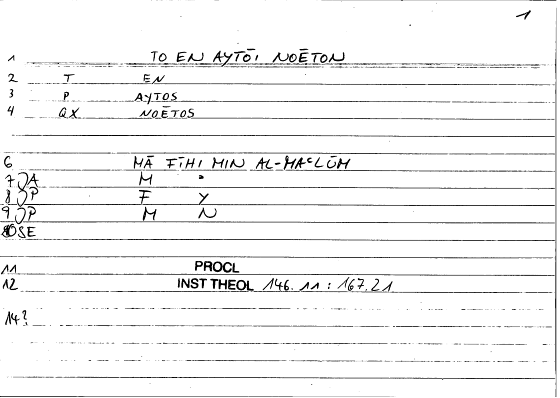 1
1 TO EN AYTŌI NOĒTON
2 T EN
3 P AYTOS
4 QX NOĒTOS
6 MĀ FĪHI MIN AL-MAʿLŪM
7 A M
8 P F Y
9 P M N
OSE
11 PROCL
12 INST THEOL 146.11 : 167.21
14?